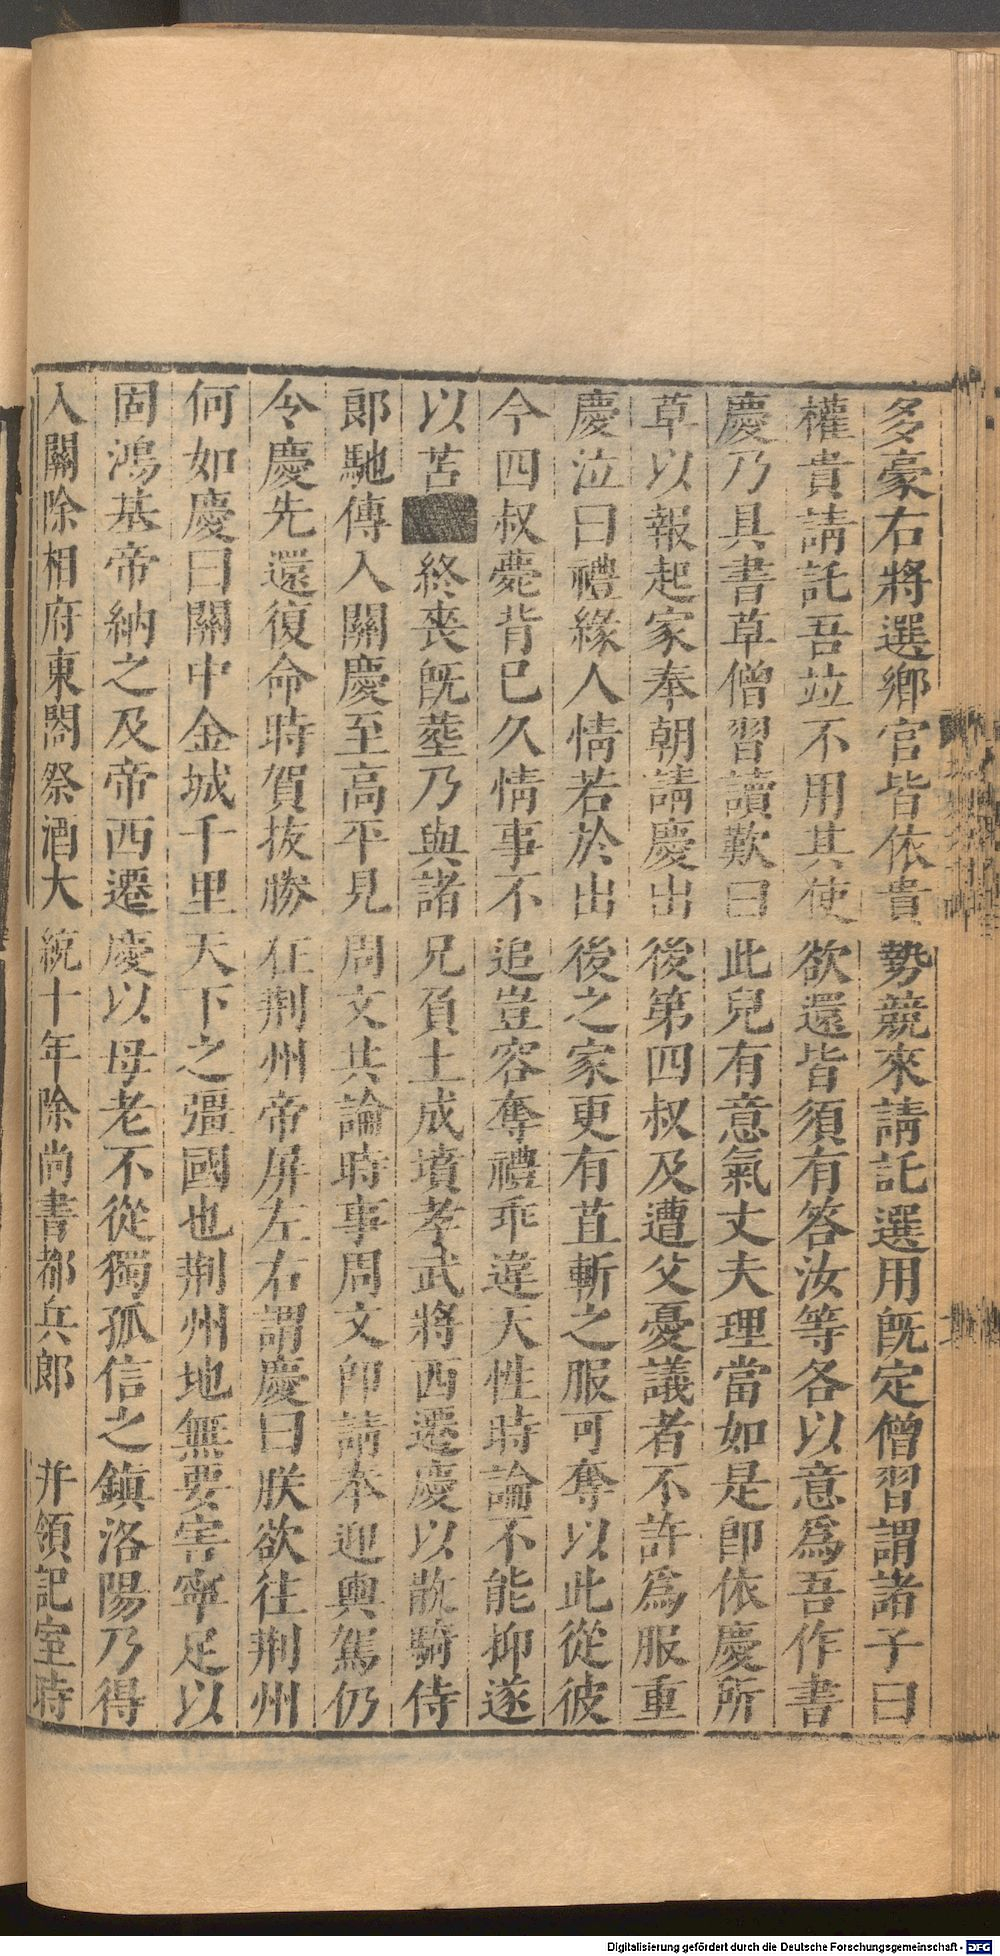 多豪右將選鄉官皆依貴勢競來請託選用旣定僧習謂諸子曰
權貴請託吾竝不用其使欲還皆須有答汝等各以意爲吾作書
慶乃具書草僧習讀歎曰此兒有意氣丈夫理當如是卽依慶所
草以報起家奉朝請慶出後第四叔及遭父憂議者不許爲服重
慶泣曰禮緣人情若於出後之家更有苴斬之服可奪以此從彼
今四叔薨背已久情事不追豈容奪禮乖違天性時論不能抑遂
以苫終喪旣塟乃與諸兄負土成墳孝武將西遷慶以散騎侍
郎馳傳入關慶至高平見周文共論時事周文卽請奉迎輿駕仍
令慶先還復命時賀抜勝在荆州帝屏左右謂慶曰朕欲往荆州
何如慶曰關中金城千里天下之彊國也荆州地無要害寧足以
固鴻基帝納之及帝西遷慶以母老不從獨孤信之鎮洛陽乃得
入關除相府東閤祭酒大統十年除尚書都兵郎 幷領記室時
Digitalisierung gefördert durch die Deutsche Forschungsgemeinschaft - DFG